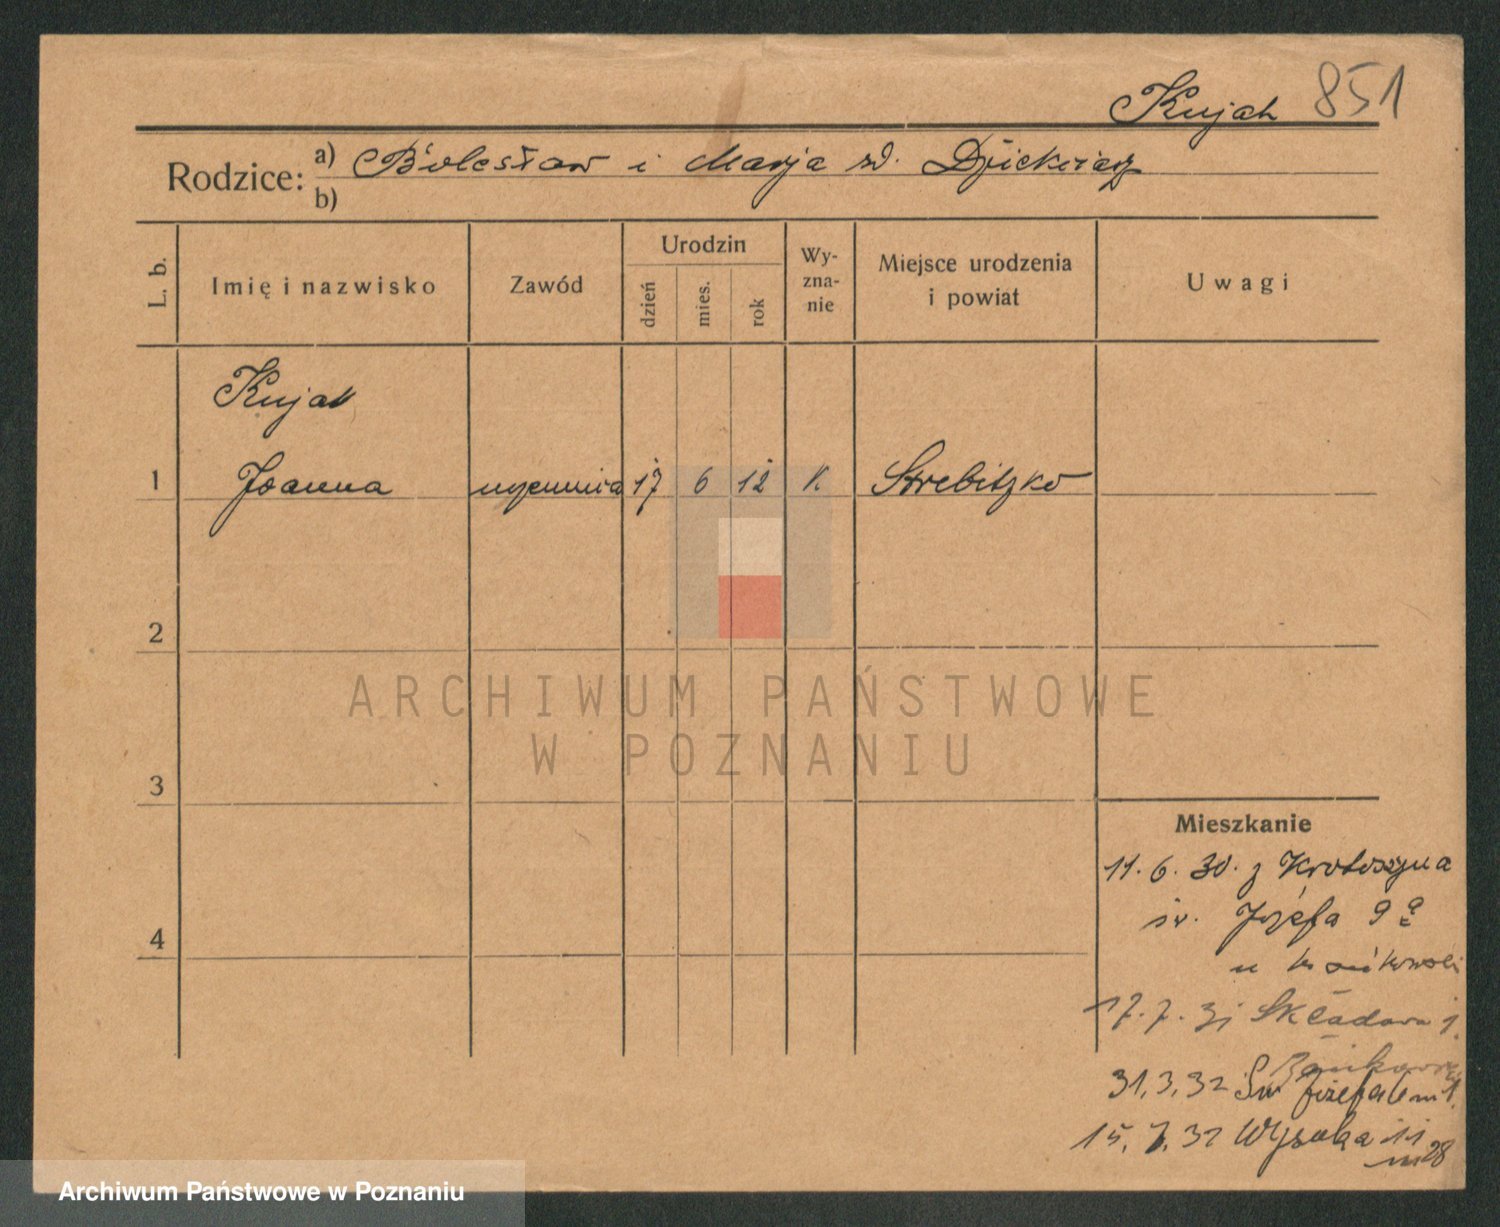 Kujak 851
Rodzice: a) Bolesław i Marja zd.
b)
L. b. Imię i nazwisko Zawód Urodzin dzień mies. rok Wy-zna-nie Miejsce urodzenia i powiat Uwagi
Kujak
1 Joanna uczennica 17 6 12 k. Strebitzko
2
ARCHIWUM PAŃSTWOWE
W POZNANIU
3
Mieszkanie
11. 6. 30. z Krotoszyna
św. Józefa 9
4
u
17. 7. 31 Składowa 1.
31. 3. 32 Św Józefa 6 m 1.
15. 7. 32 Wysoka 11
m 28
Archiwum Państwowe w Poznaniu